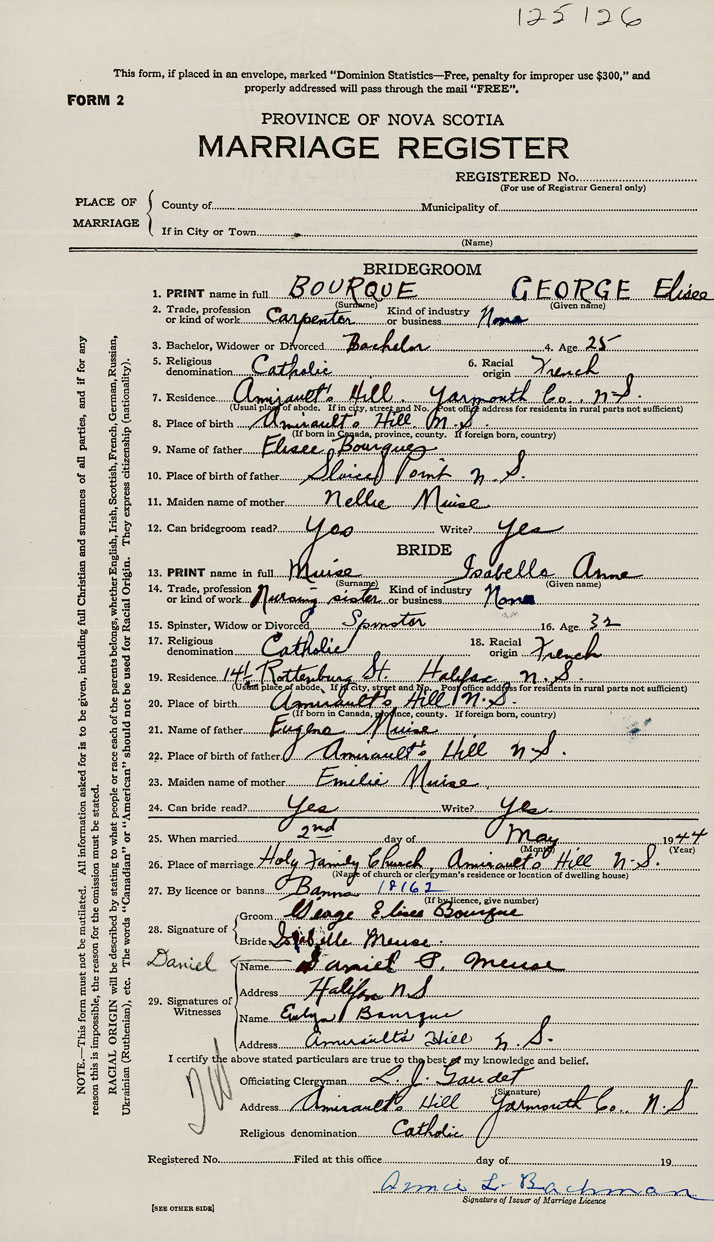 125126
This form, if placed in an envelope, marked "Dominion Statistics—Free, penalty for improper use $300," and
properly addressed will pass through the mail "FREE".
FORM 2
PROVINCE OF NOVA SCOTIA
MARRIAGE REGISTER
REGISTERED No.
(For use of Registrar General only)
PLACE OF MARRIAGE
County of Municipality of
If in City or Town
(Name)
BRIDEGROOM
1. PRINT name in full BOURQUE GEORGE Elisee
(Surname) (Given name)
2. Trade, profession or kind of work Carpenter Kind of industry or business None
3. Bachelor, Widower or Divorced Bachelor 4. Age 25
5. Religious denomination Catholic 6. Racial origin French
7. Residence Amirault's Hill Yarmouth Co. N.S.
(Usual place of abode. If in city, street and No. Post office address for residents in rural parts not sufficient)
8. Place of birth Amirault's Hill N.S.
(If born in Canada, province, county. If foreign born, country)
9. Name of father Elisee Bourque
10. Place of birth of father Sluice Point N.S.
11. Maiden name of mother Nellie Muise
12. Can bridegroom read? Yes Write? Yes
BRIDE
13. PRINT name in full Muise Isabelle Anne
(Surname) (Given name)
14. Trade, profession or kind of work Nursing sister Kind of industry or business None
15. Spinster, Widow or Divorced Spinster 16. Age 32
17. Religious denomination Catholic 18. Racial origin French
19. Residence Rottenburg St. Halifax N.S.
(Usual place of abode. If in city, street and No. Post office address for residents in rural parts not sufficient)
20. Place of birth Amirault's Hill N.S.
(If born in Canada, province, county. If foreign born, country)
21. Name of father Eugene Muise
22. Place of birth of father Amirault's Hill N.S.
23. Maiden name of mother Emilie Muise
24. Can bride read? Yes Write? Yes
25. When married 2nd day of May 1944
(Month) (Year)
26. Place of marriage Holy Family Church, Amirault's Hill N.S.
(Name of church or clergyman's residence or location of dwelling house)
27. By licence or banns Banns 18162
(If by licence, give number)
28. Signature of Groom George Elisee Bourque
Bride Isabelle Meuse.
Daniel
29. Signatures of Witnesses
Name Daniel P. Meuse
Address Halifax NS
Name Evelyn Bourque
Address Amirault's Hill N.S.
I certify the above stated particulars are true to the best of my knowledge and belief.
Officiating Clergyman L. J. Gaudet
(Signature)
Address Amirault's Hill Yarmouth Co. N.S
Religious denomination Catholic
Registered No. Filed at this office day of 19
Bachman
Signature of Issuer of Marriage Licence
[SEE OTHER SIDE]
NOTE.—This form must not be mutilated. All information asked for is to be given, including full Christian and surnames of all parties, and if for any
reason this is impossible, the reason for the omission must be stated.
RACIAL ORIGIN will be described by stating to what people or race each of the parents belongs, whether English, Irish, Scottish, French, German, Russian,
Ukrainian (Ruthenian), etc. The words "Canadian" or "American" should not be used for Racial Origin. They express citizenship (nationality).